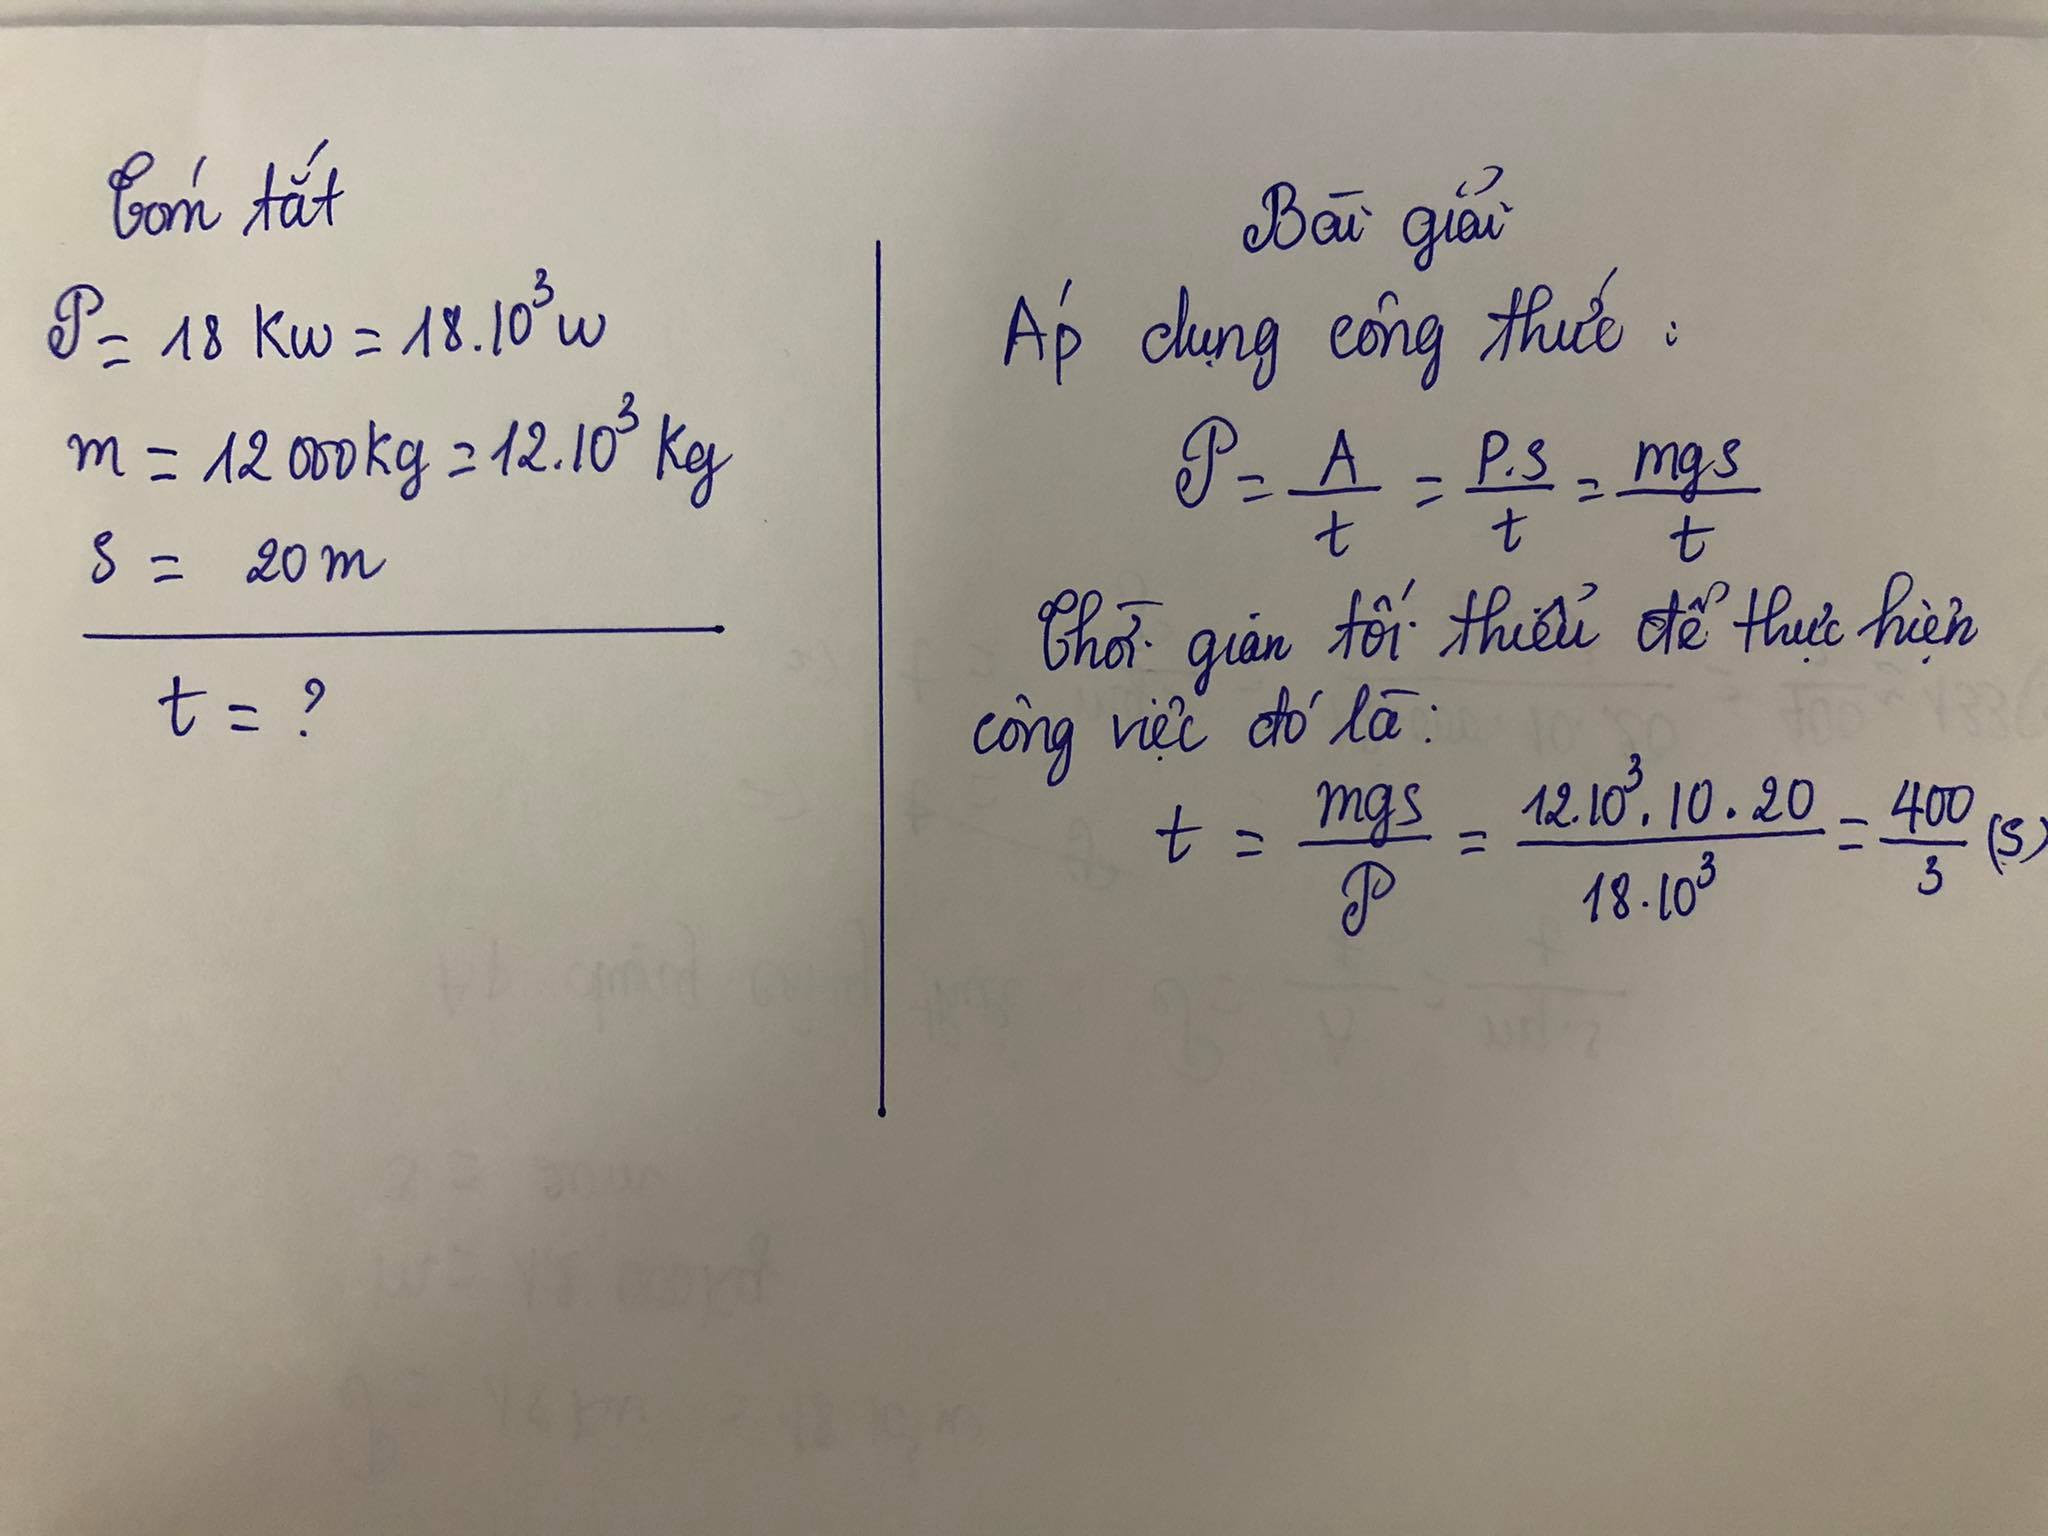 Tóm tắt
P = 18 Kw = 18.10³w
m = 12 000kg = 12.10³ Kg
S = 20m
t = ?
Bài giải
Áp dụng công thức :
P = A/t = P.S/t = mgs/t
Thời gian tối thiểu để thực hiện
công việc đó là:
t = mgs/P = 12.10³.10.20/18.10³ = 400/3 (S)